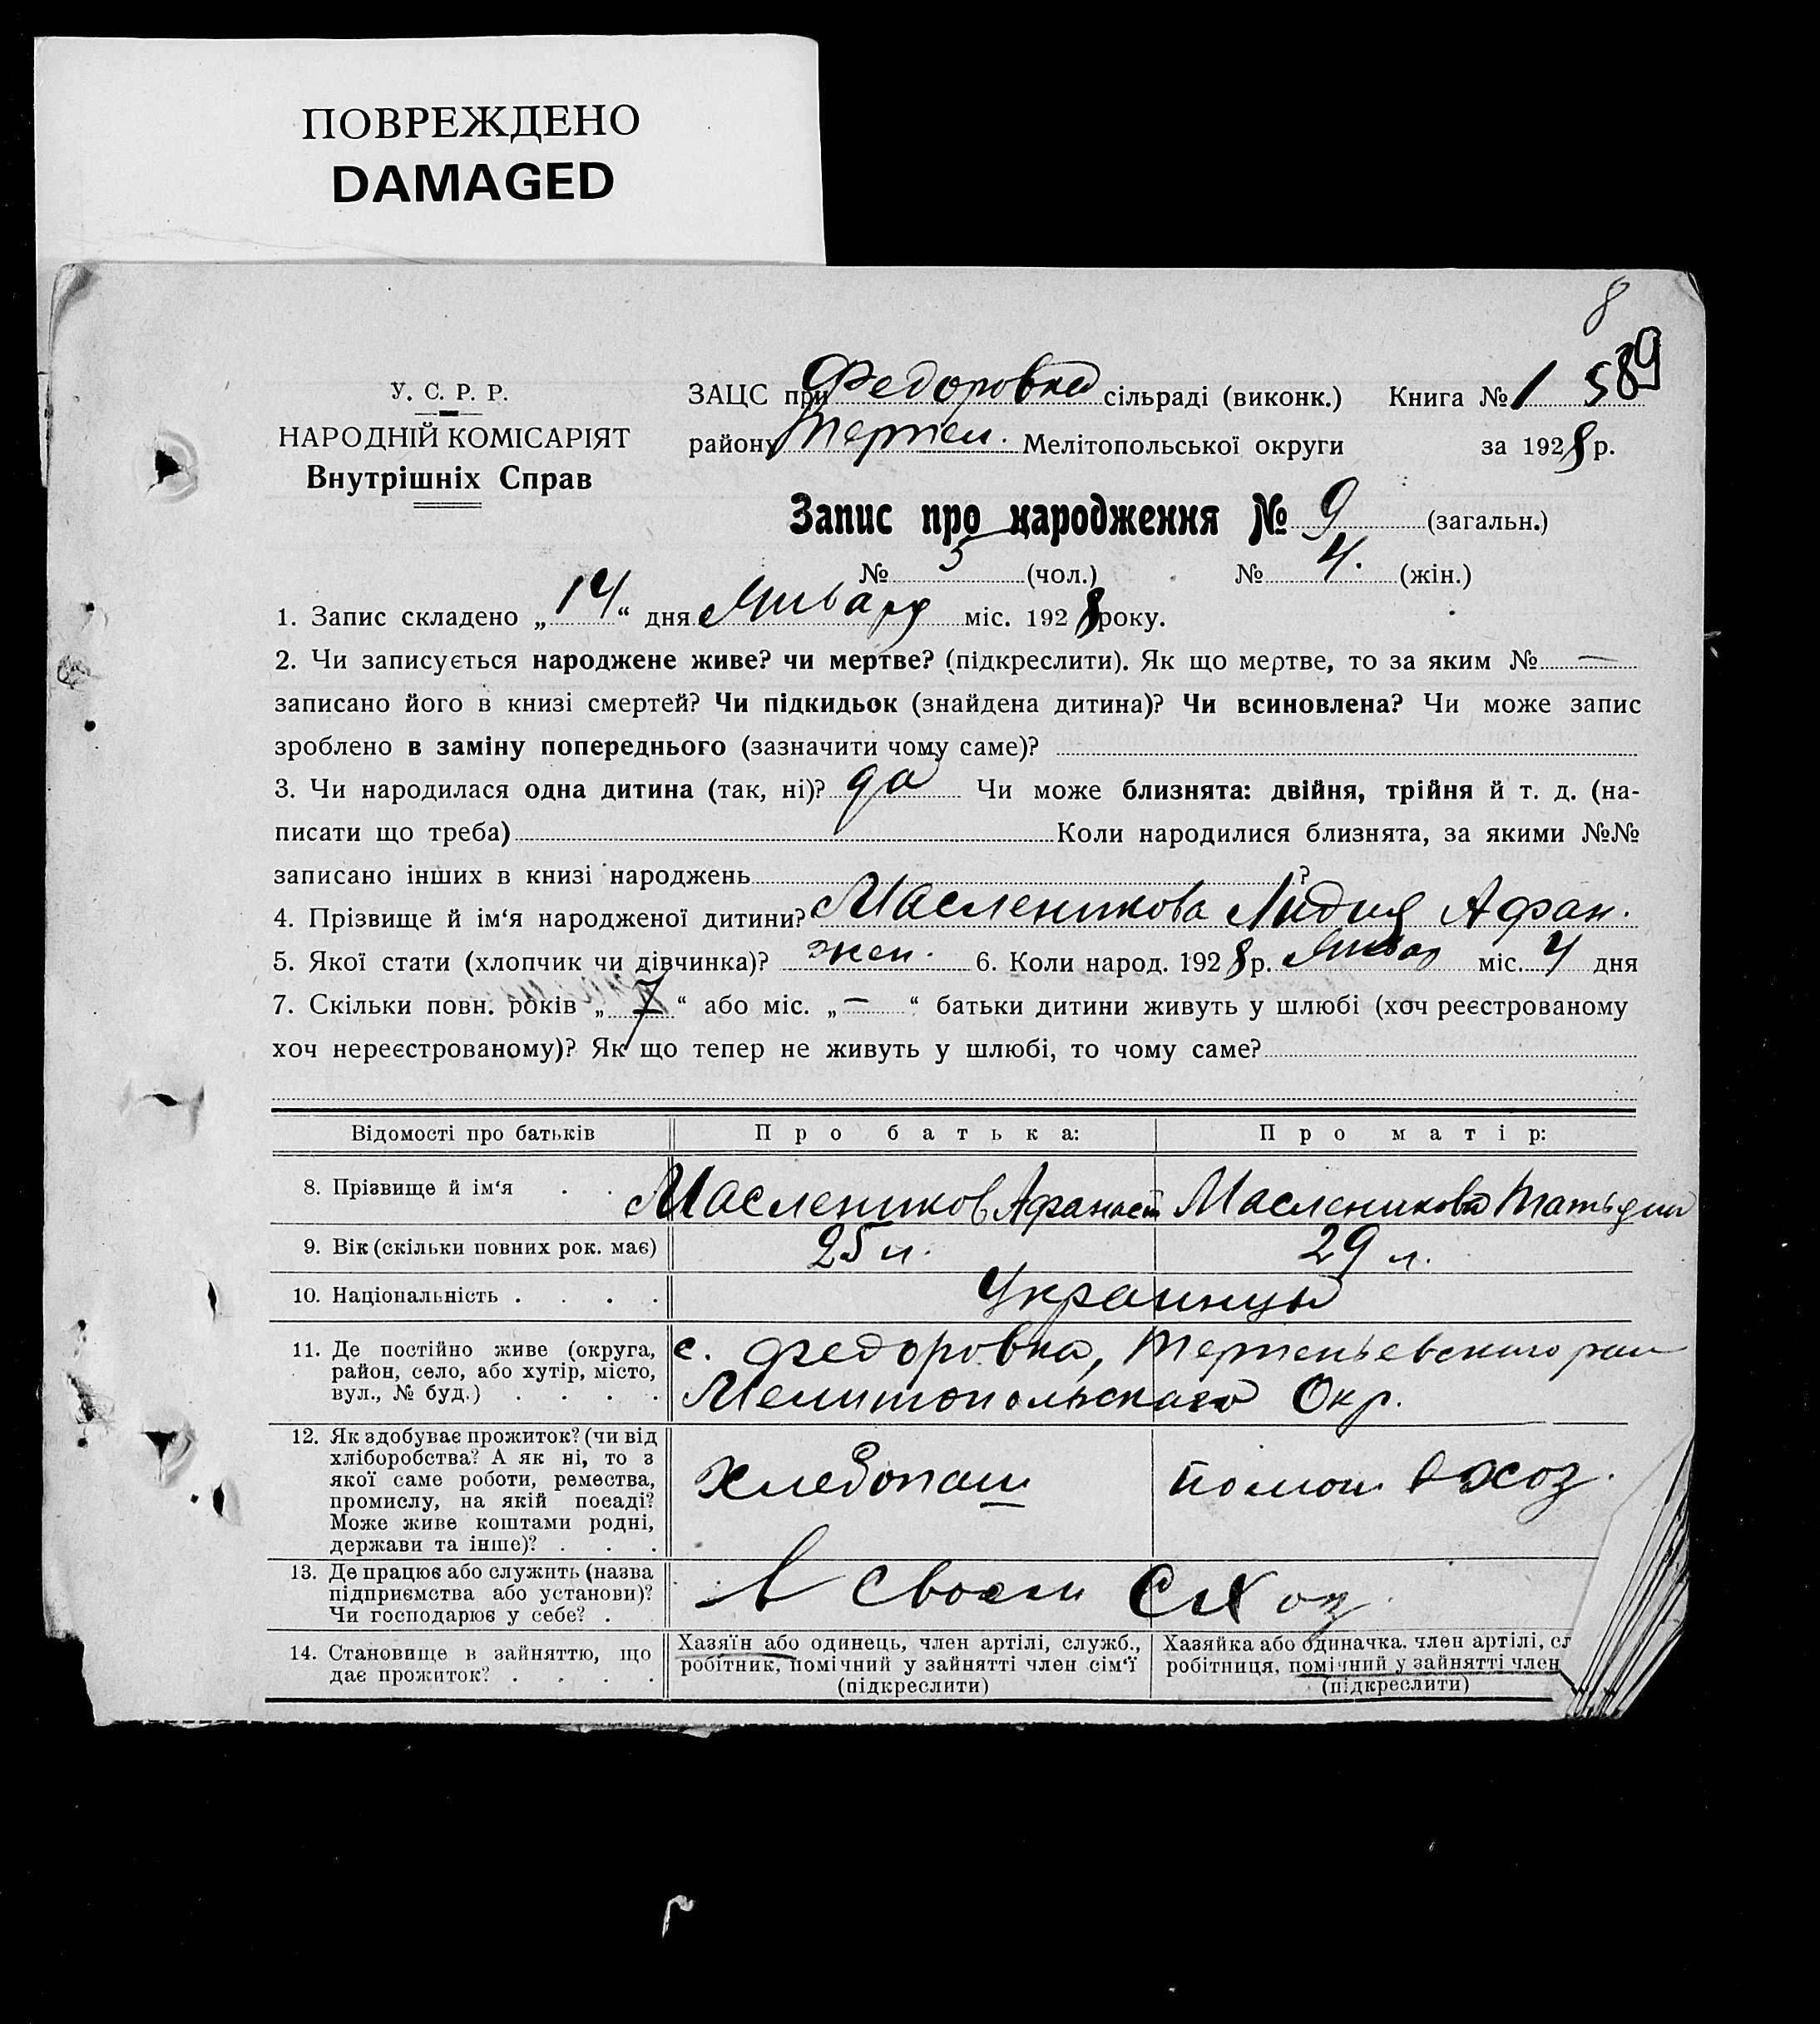 ПОВРЕЖДЕНО
DAMAGED
8
У. С. Р. Р.
НАРОДНІЙ КОМІСАРІЯТ
Внутрішніх Справ
ЗАЦС при Федоровка сільраді (виконк.) Книга № 1 589
району Терпен. Мелітопольської округи за 1928 р.
Запис про народження № 9 (загальн.)
№ 5 (чол.) № 4. (жін.)
1. Запис складено „14“ дня Января міс. 1928 року.
2. Чи записується народжене живе? чи мертве? (підкреслити). Як що мертве, то за яким № —
записано його в книзі смертей? Чи підкидьок (знайдена дитина)? Чи всиновлена? Чи може запис
зроблено в заміну попереднього (зазначити чому саме)?
3. Чи народилася одна дитина (так, ні)? да Чи може близнята: двійня, трійня й т. д. (на-
писати що треба) Коли народилися близнята, за якими №№
записано інших в книзі народжень ?
4. Прізвище й ім‘я народженої дитини? Масленикова Лидия Афан.
5. Якої стати (хлопчик чи дівчинка)? жен. 6. Коли народ. 1928 р. Январ міс. 4 дня
7. Скільки повн. років „7“ або міс. „—“ батьки дитини живуть у шлюбі (хоч реєстрованому
хоч нереєстрованому)? Як що тепер не живуть у шлюбі, то чому саме?
Відомості про батьків Про батька: Про матір:
8. Прізвище й ім‘я . . Маслеников Афанасий Масленикова Татьяна
9. Вік (скільки повних рок. має) 25 л. 29 л.
10. Національність . . . . Украинцы
11. Де постійно живе (округа, с. Федоровка, Терпеньевского рай
район, село, або хутір, місто,
вул., № буд.) . . . . Мелитопольского Окр.
12. Як здобуває прожиток? (чи від
хліборобства? А як ні, то з
якої саме роботи, ремества, Хлебопаш помощ. в хоз.
промислу, на якій посаді?
Може живе коштами родні,
держави та інше)? . . .
13. Де працює або служить (назва
підприємства або установи)? в своем СХоз.
Чи господарює у себе? .
14. Становище в зайняттю, що
дає прожиток? . . . .
Хазяїн або одинець, член артілі, служб.,
робітник, помічний у зайнятті член сім‘ї
(підкреслити)
Хазяйка або одиначка. член артілі, сл
робітниця, помічний у зайнятті член
(підкреслити)